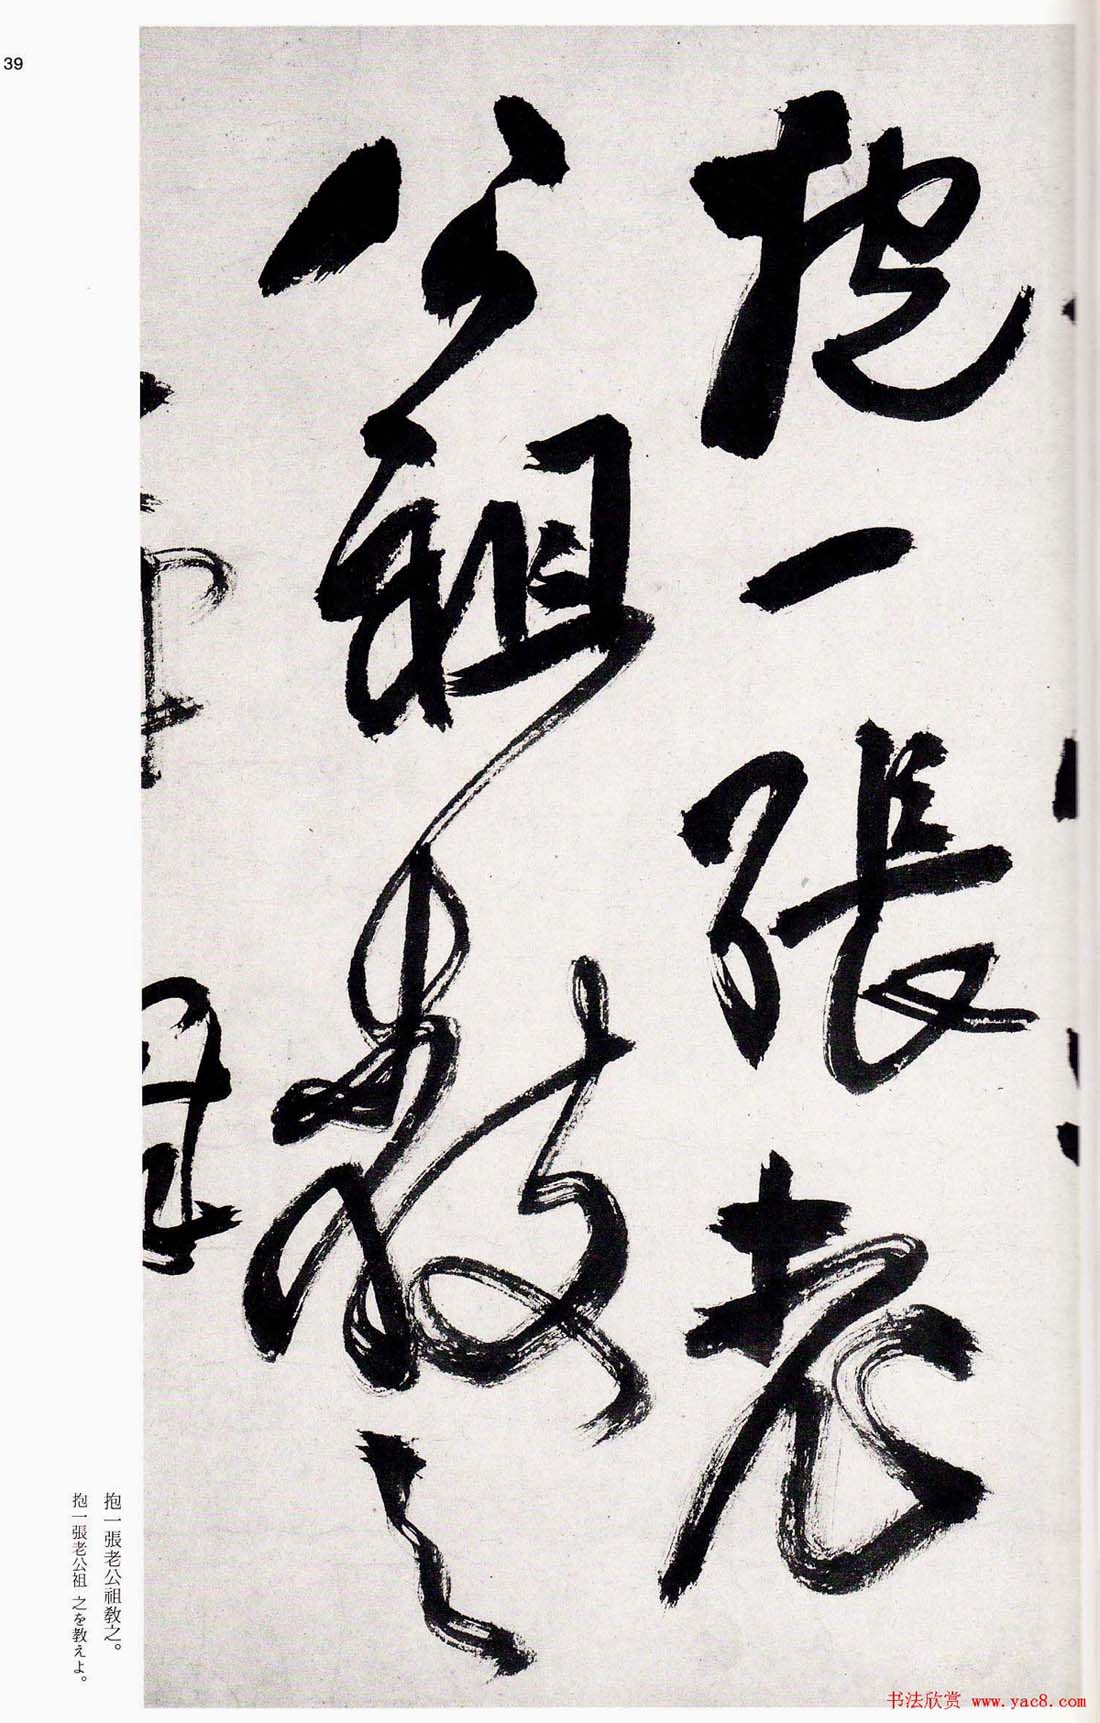 39
抱一張老
公祖教之
抱一張老公祖教之。
抱一張老公祖 之を教えよ。
书法欣赏 www.yac8.com